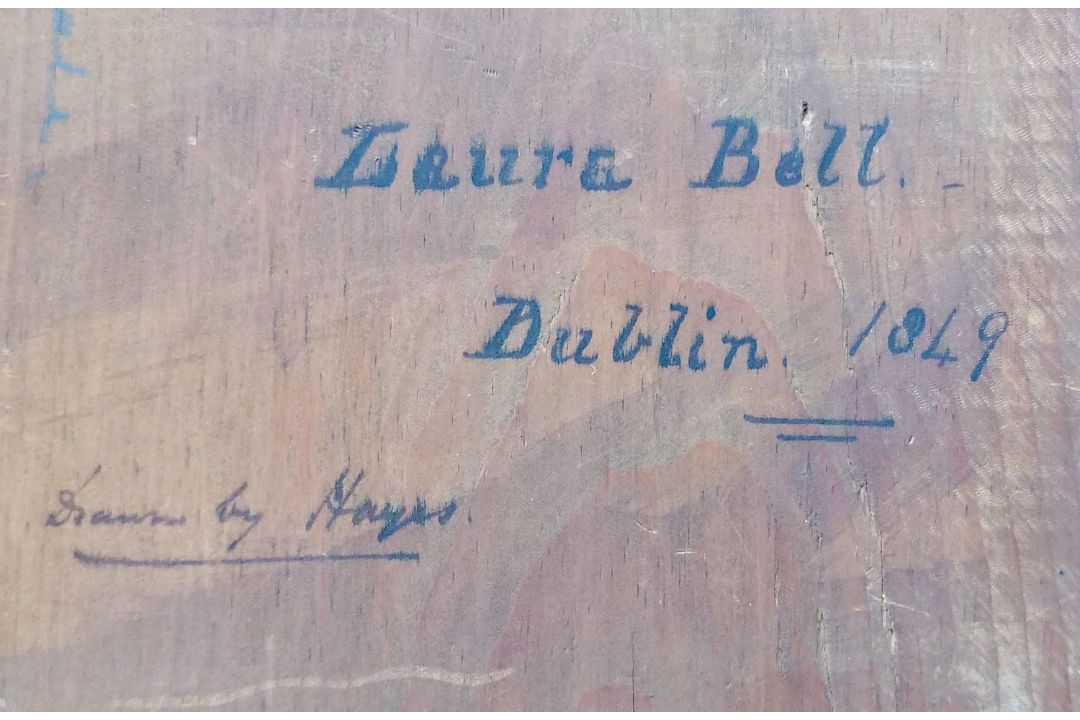 Laura Bell.
Dublin. 1849
Drawn by Hayes.